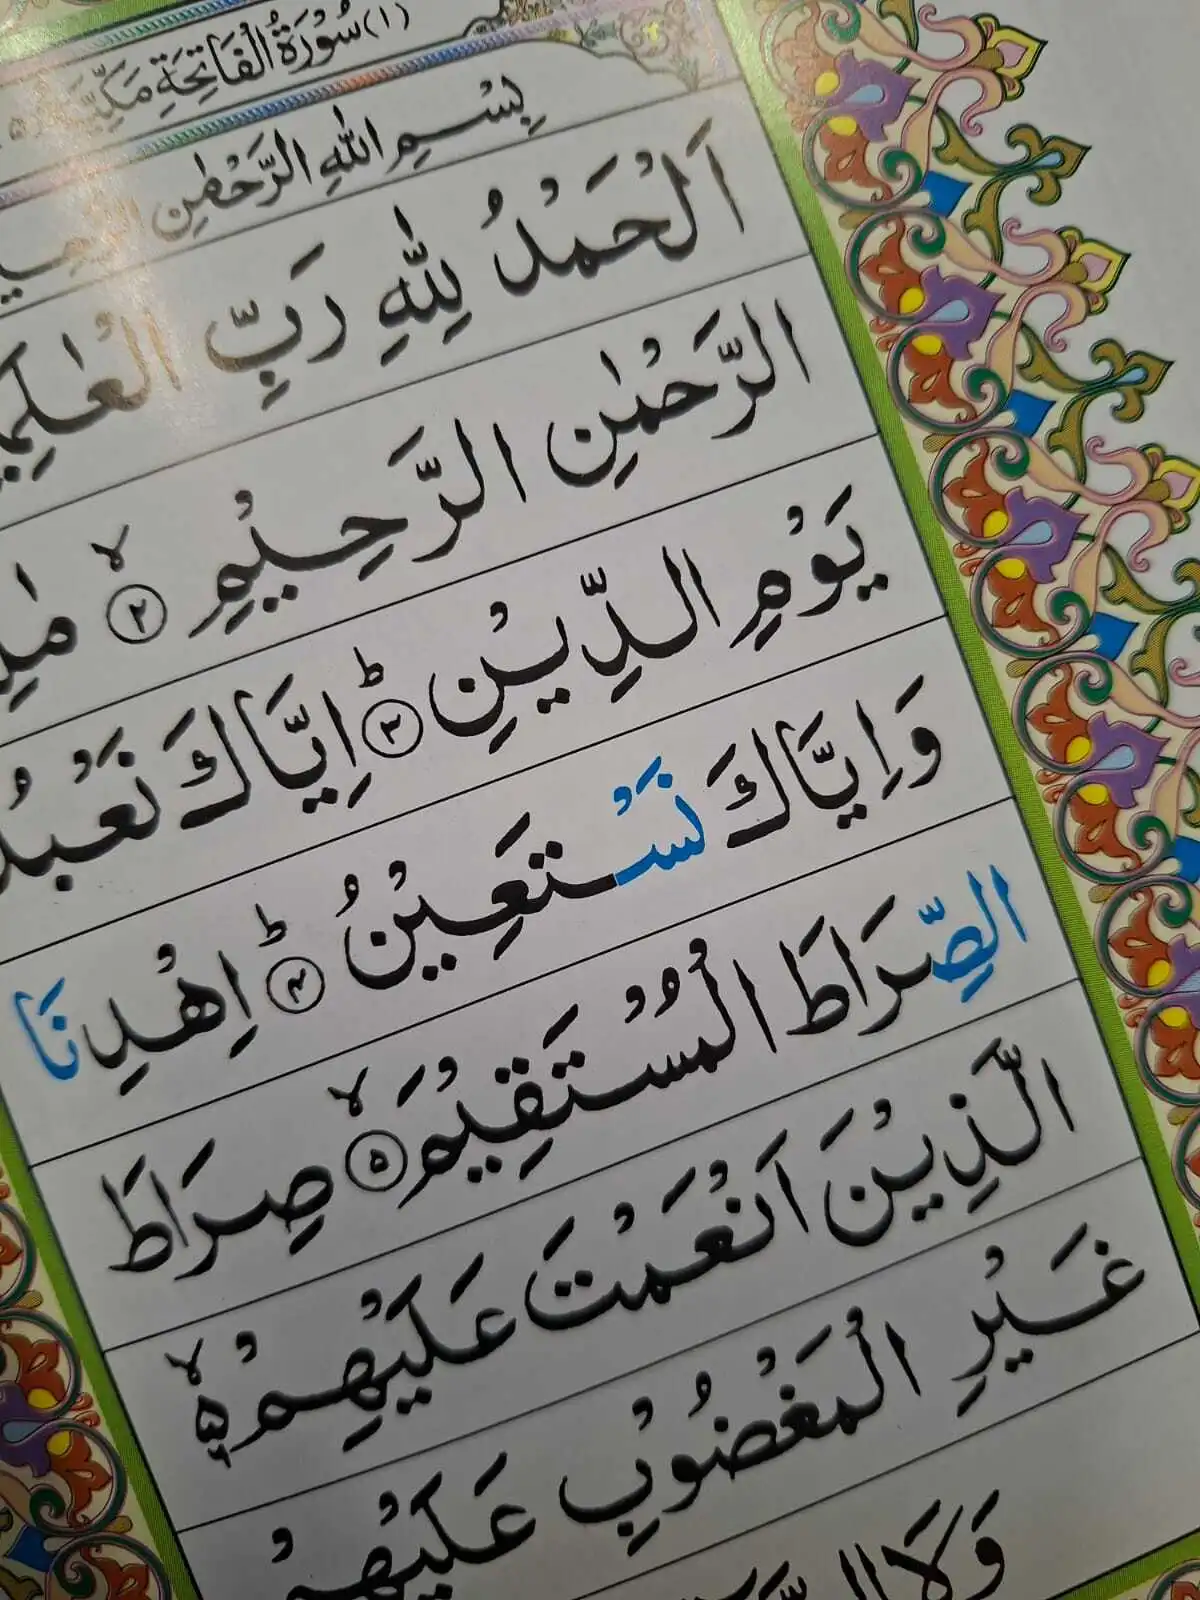 (۱) سُوۡرَةُ الۡفَاتِحَةِ مَكِّيَّةٌ
بِسۡمِ اللّٰهِ الرَّحۡمٰنِ الرَّحِيۡمِ
اَلۡحَمۡدُ لِلّٰهِ رَبِّ الۡعٰلَمِيۡنَ
الرَّحۡمٰنِ الرَّحِيۡمِ ۙ‏ ﴿۲﴾ مٰلِكِ
يَوۡمِ الدِّيۡنِ ؕ‏ ﴿۳﴾ اِيَّاكَ نَعۡبُدُ
وَاِيَّاكَ نَسۡتَعِيۡنُ ؕ‏ ﴿۴﴾ اِهۡدِنَا
الصِّرَاطَ الۡمُسۡتَقِيۡمَ ۙ‏ ﴿۵﴾ صِرَاطَ
الَّذِيۡنَ اَنۡعَمۡتَ عَلَيۡهِمۡ ۙ ۵
غَيۡرِ الۡمَغۡضُوۡبِ عَلَيۡهِمۡ
وَلَا